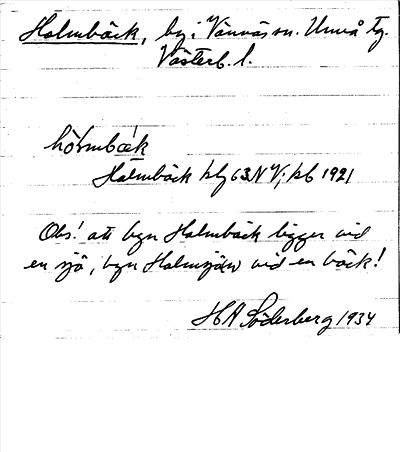 Holmbäck, by i Vännäs sn. Umeå tg.
Västerb. l.
hòlmbäk
Holmbäck kbg 63 NV; kb 1921
Obs! att byn Holmbäck ligger vid
en sjö, byn Holmsjön vid en bäck!
HA Söderberg 1934